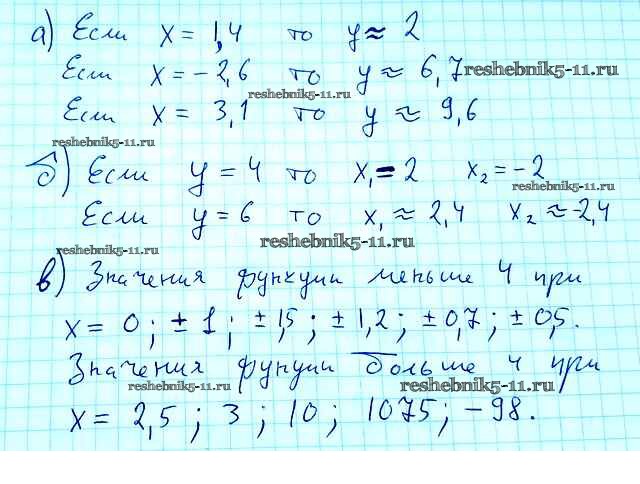 а) Если x = 1,4 то y ≈ 2
Если x = -2,6 то y ≈ 6,7 reshebnik5-11.ru
reshebnik5-11.ru
Если x = 3,1 то y ≈ 9,6
reshebnik5-11.ru
б) Если y = 4 то x₁ = 2 x₂ = -2
reshebnik5-11.ru
Если y = 6 то x₁ ≈ 2,4 x₂ ≈ -2,4
reshebnik5-11.ru
reshebnik5-11.ru
в) Значения функции меньше 4 при
x = 0; ± 1; ± 1,5; ± 1,2; ± 0,7; ± 0,5.
Значения фунции больше 4 при
reshebnik5-11.ru
reshebnik5-11.ru
x = 2,5; 3; 10; 1075; -98.